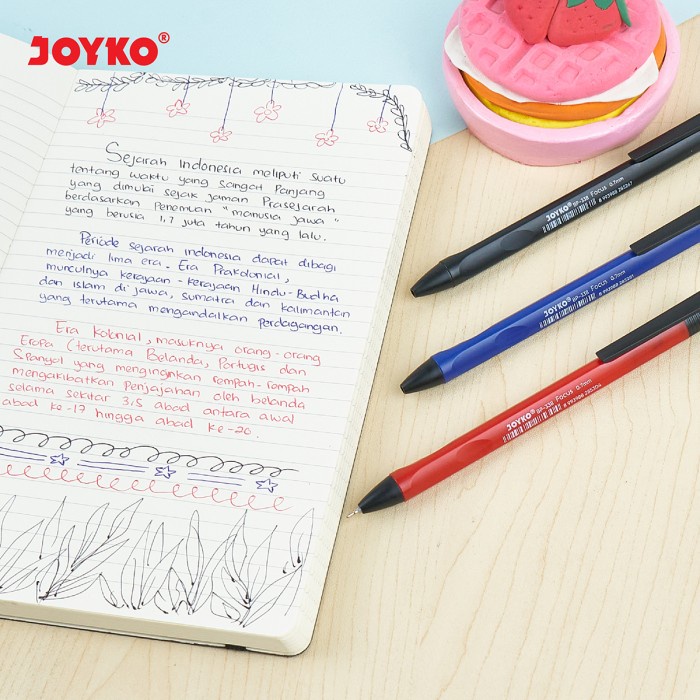 JOYKO®
Sejarah Indonesia meliputi suatu
tentang waktu yang sangat Panjang
yang dimulai sejak jaman Prasejarah
berdasarkan Penemuan "manusia jawa"
yang berusia 1,7 juta tahun yang lalu.
Periode sejarah indonesia dapat dibagi
menjadi lima era. Era Prakolonial,
munculnya kerayaan-kerajaan Hindu-Budha
dan islam di jawa, sumatra dan kalimantan
yang terutama mengandalkan perdagangan.
Era kolonial, masuknya orang-orang
Eropa (terutama Belanda, Portugis dan
Spanyol yang menginginkan rempah-rempah
mengakibatkan Penjajahan oleh belanda
selama sekitar 3,5 abad antara awal
abad ke-17 hingga abad ke-20.
JOYKO® GP-338 Focus 0.7mm
JOYKO® GP-338 Focus 0.7mm
JOYKO® GP-338 Focus 0.7mm